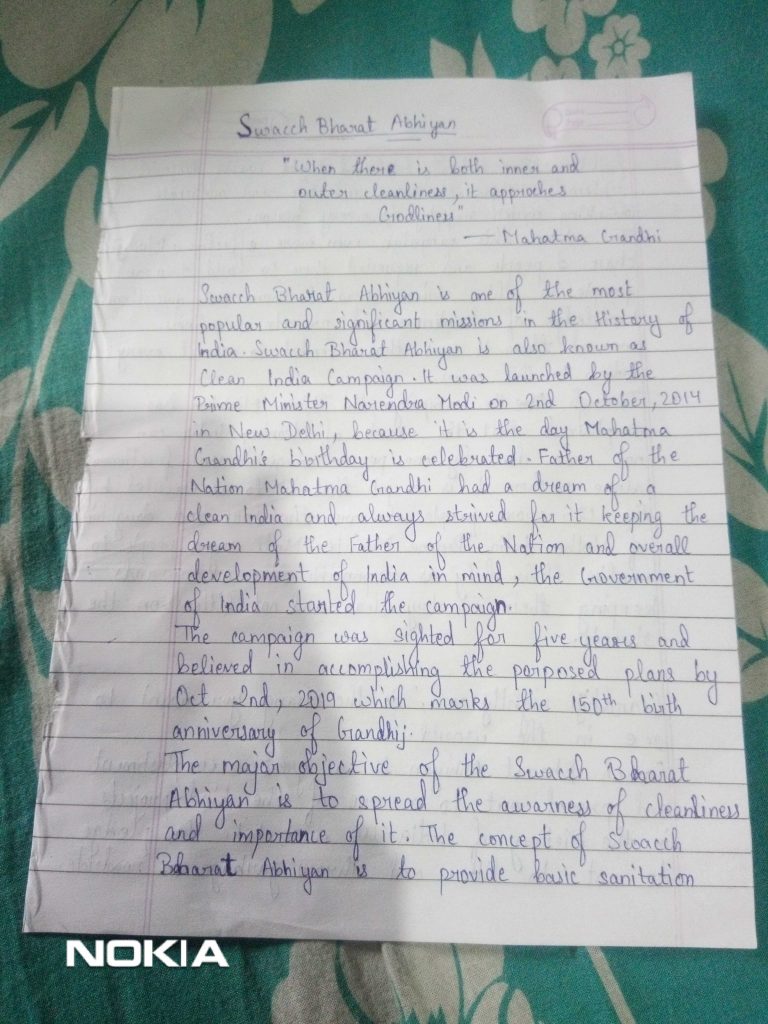 Swacch Bharat Abhiyan
"When there is both inner and
outer cleanliness, it approches
Godliness"
— Mahatma Gandhi
Swacch Bharat Abhiyan is one of the most
popular and significant missions in the History of
India. Swacch Bharat Abhiyan is also known as
Clean India Campaign. It was launched by the
Prime Minister Narendra Modi on 2nd October, 2014
in New Delhi, because it is the day Mahatma
Gandhi's birthday is celebrated. Father of the
Nation Mahatma Gandhi had a dream of a
clean India and always strived for it keeping the
dream of the Father of the Nation and overall
development of India in mind, the Government
of India started the campaign.
The campaign was sighted for five years and
believed in accomplishing the porposed plans by
Oct 2nd, 2019 which marks the 150th birth
anniversary of Gandhij.
The major objective of the Swacch Bharat
Abhiyan is to spread the awarness of cleanliness
and importance of it. The concept of Swacch
Bharat Abhiyan is to provide basic sanitation
NOKIA